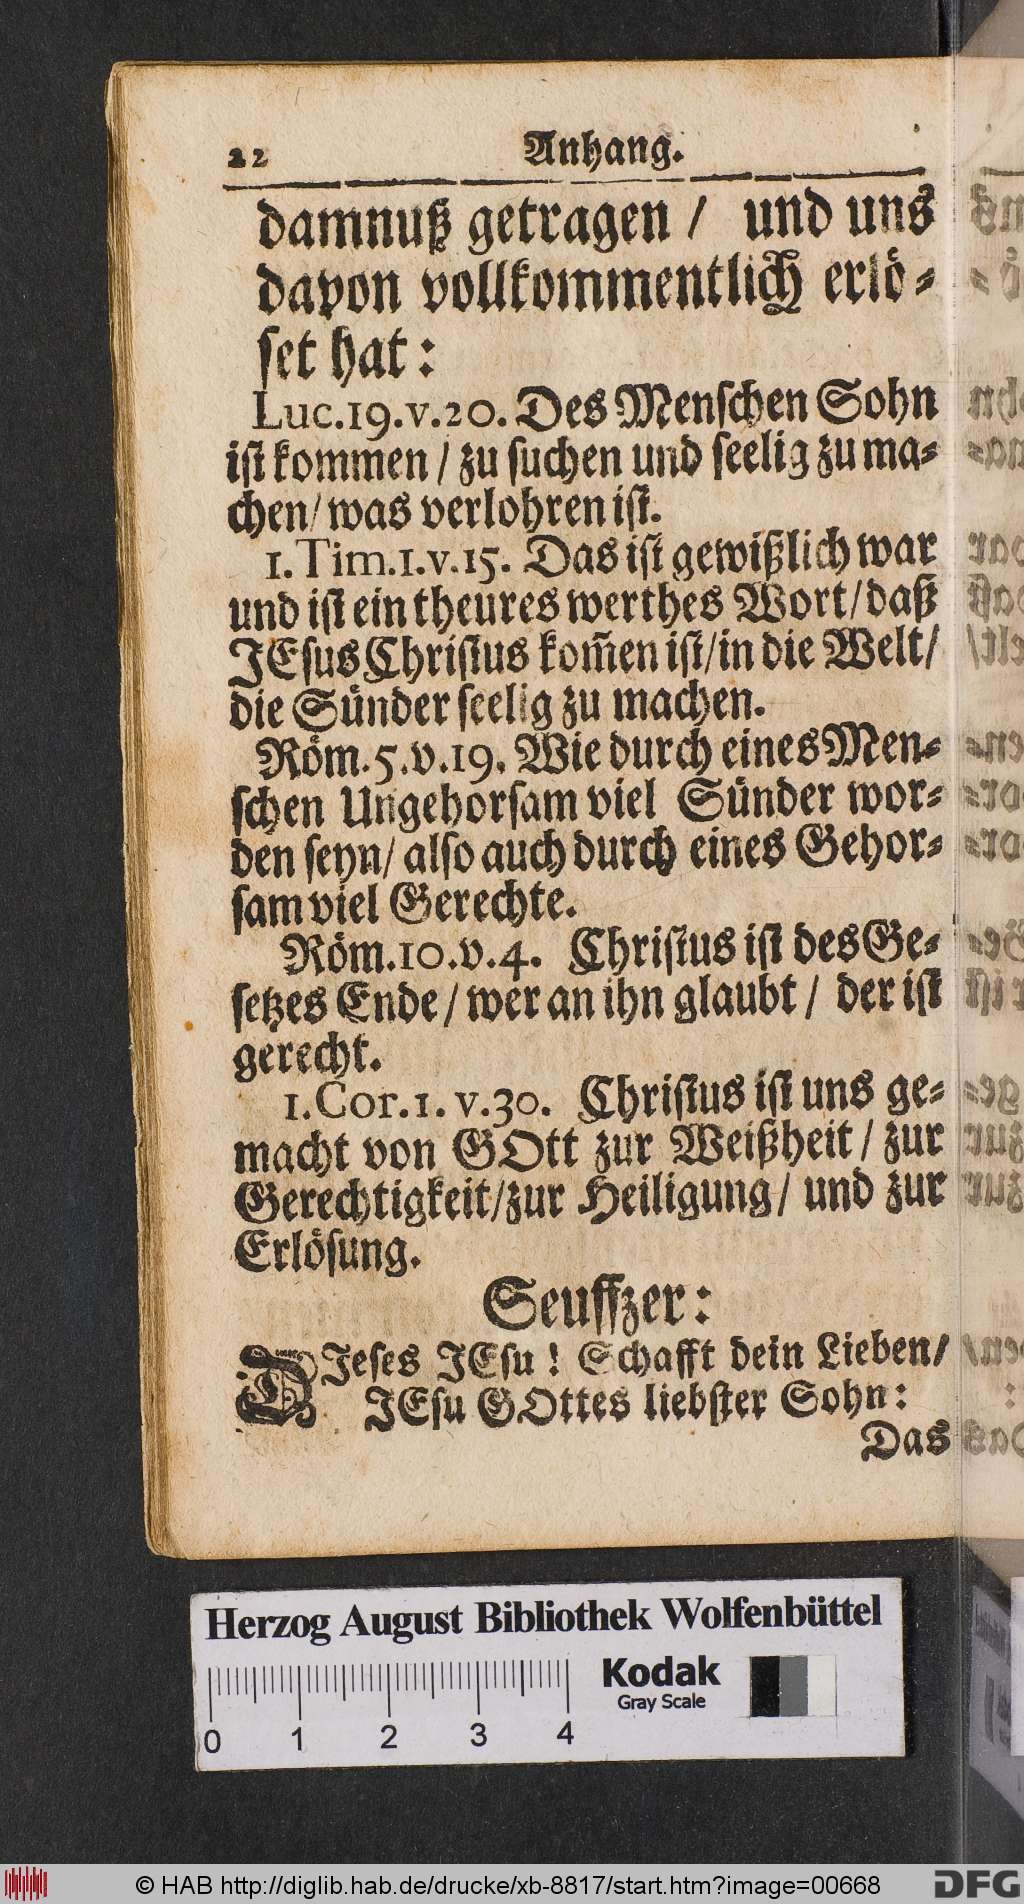 22
Anhang.
damnuß getragen / und uns
davon vollkommentlich erlö-
set hat:
Luc.19.v.20. Des Menschen Sohn
ist kommen / zu suchen und seelig zu ma-
chen/ was verlohren ist.
1.Tim.1.v.15. Das ist gewißlich war
und ist ein theures werthes Wort/daß
JEsus Christus kom̃en ist/in die Welt/
die Sünder seelig zu machen.
Röm.5.v.19. Wie durch eines Men-
schen Ungehorsam viel Sünder wor-
den seyn/ also auch durch eines Gehor-
sam viel Gerechte.
Röm.10.v.4. Christus ist des Ge-
setzes Ende / wer an ihn glaubt / der ist
gerecht.
1.Cor.1.v.30. Christus ist uns ge-
macht von GOtt zur Weißheit / zur
Gerechtigkeit/zur Heiligung/ und zur
Erlösung.
Seuffzer:
DJeses JEsu! Schafft dein Lieben/
JEsu GOttes liebster Sohn:
Das
Herzog August Bibliothek Wolfenbüttel
Kodak
Gray Scale
0 1 2 3 4
© HAB http://diglib.hab.de/drucke/xb-8817/start.htm?image=00668
DFG